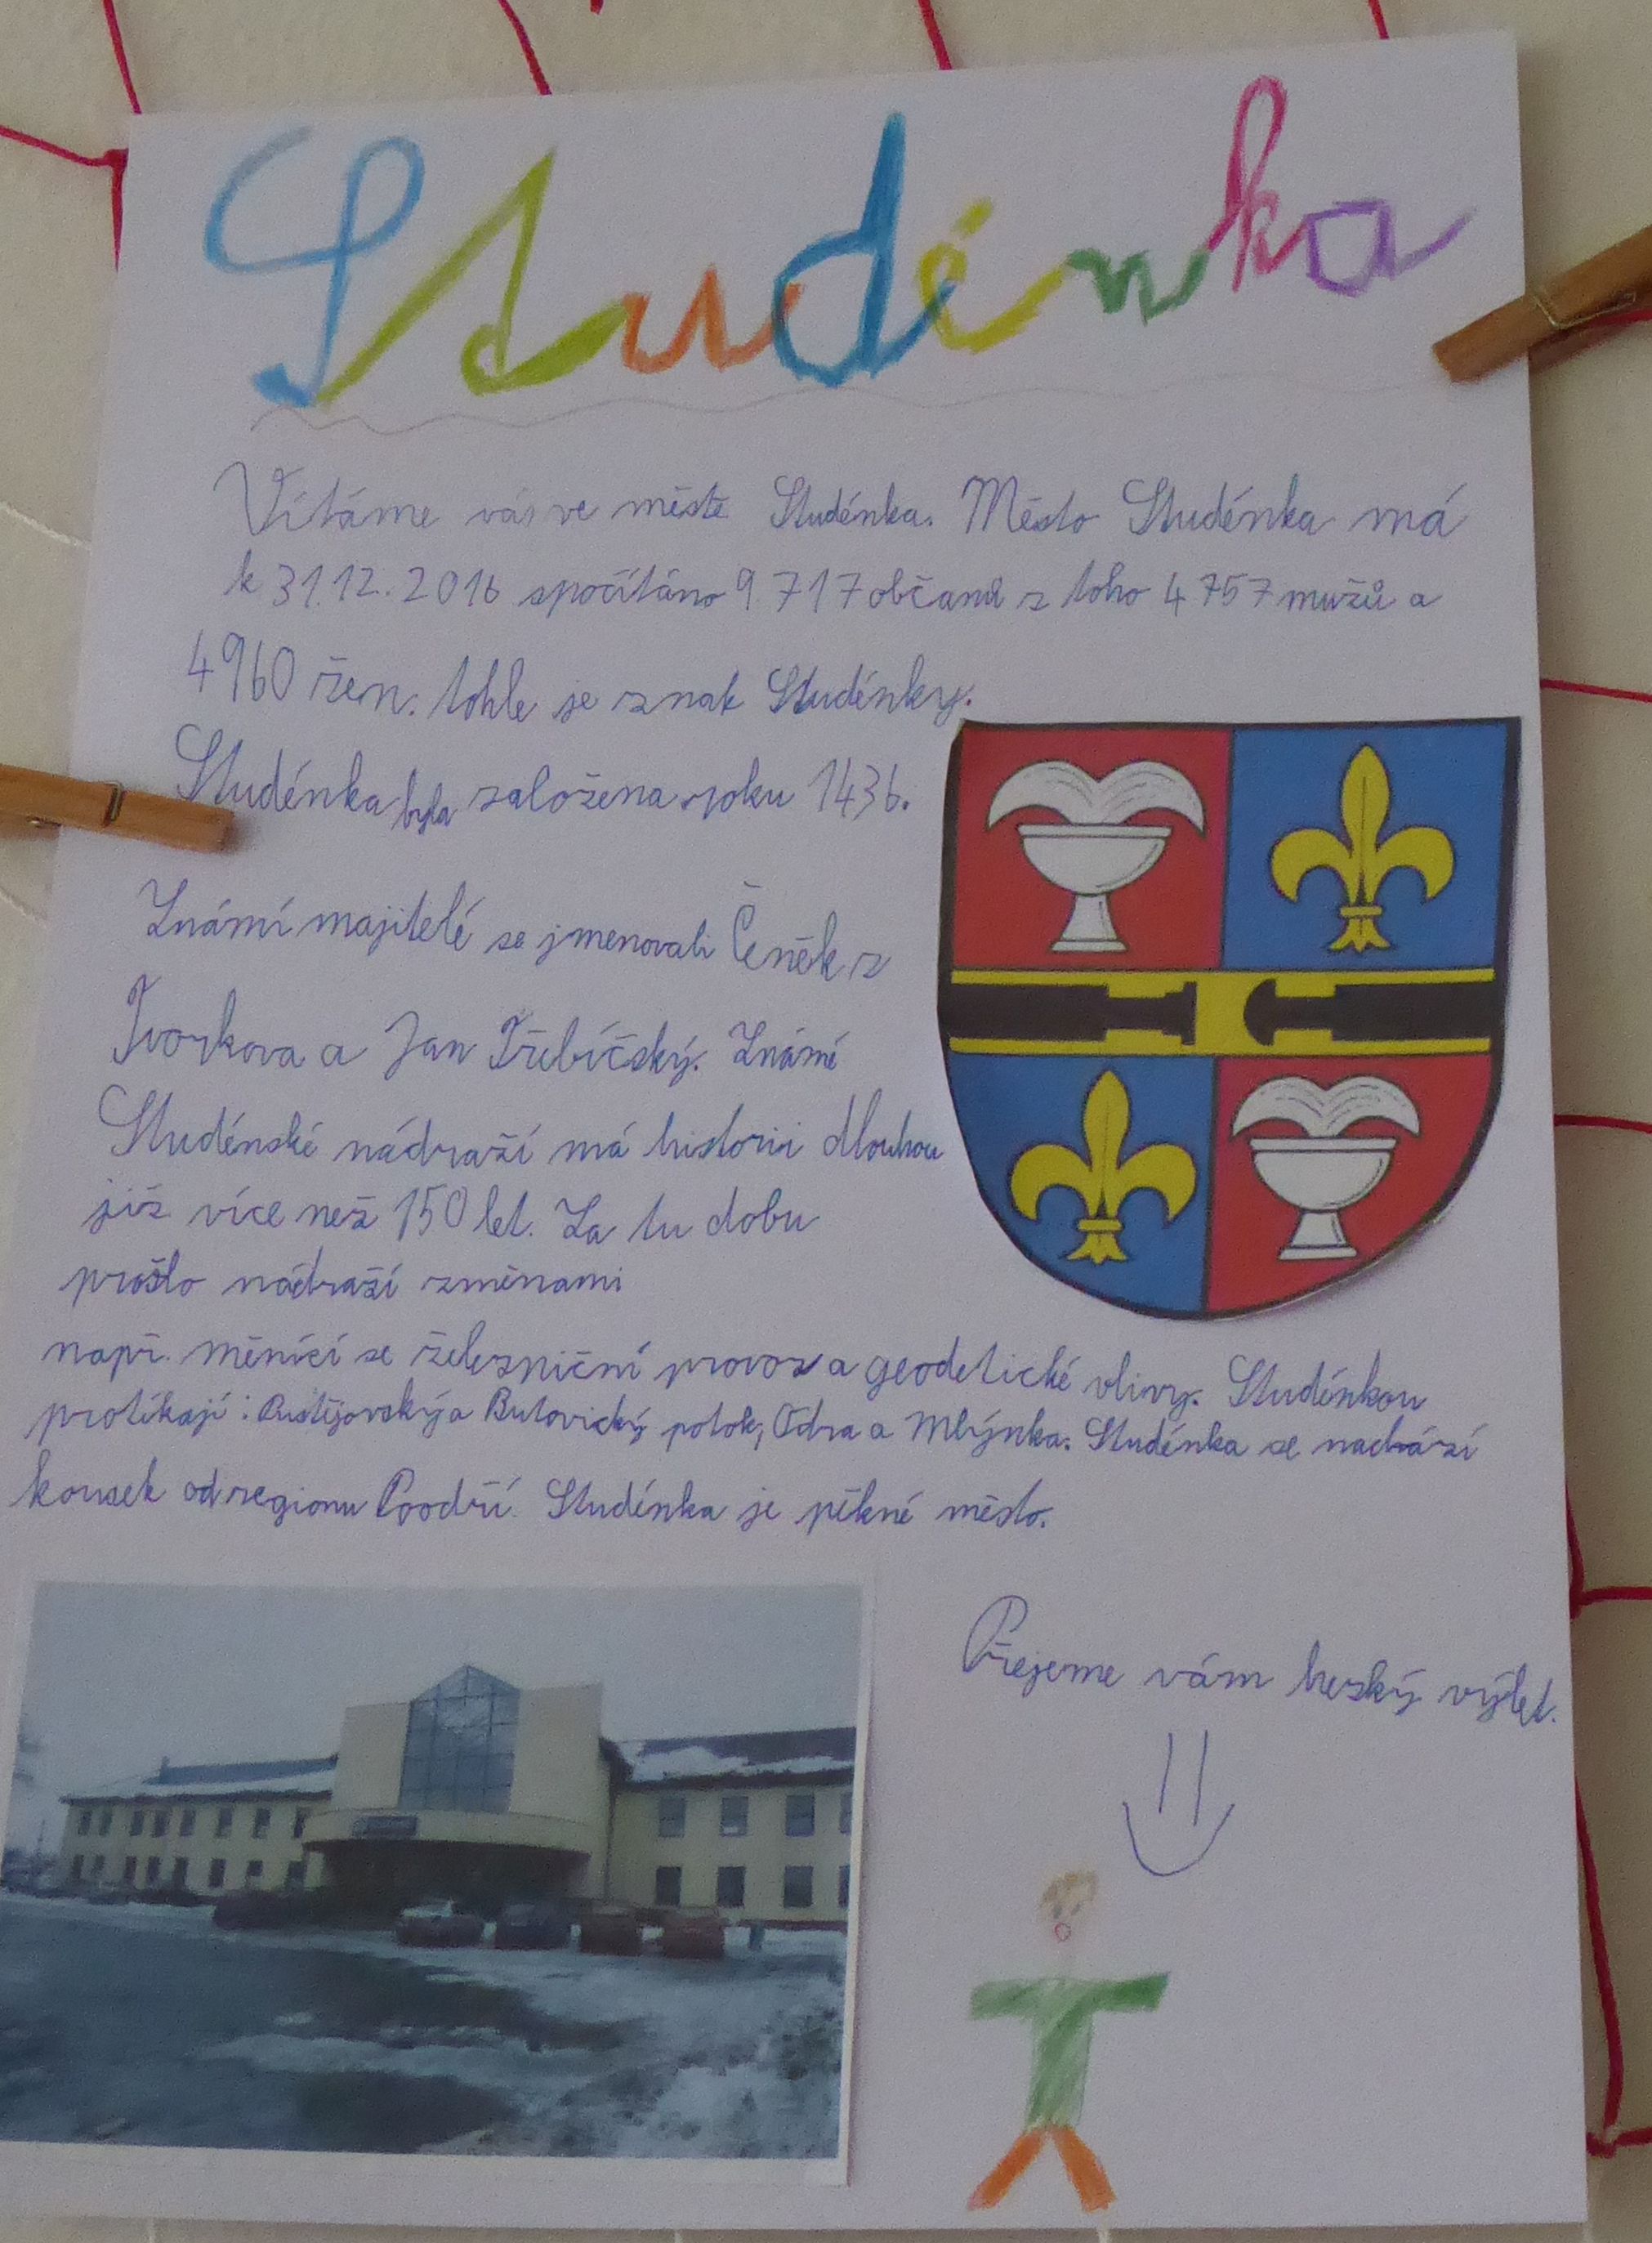 Studénka
Vítáme vás ve městě Studénka. Město Studénka má
k 31.12. 2016 spočítáno 9 717 občanů z toho 4 757 mužů a
4960 žen. tohle je znak Studénky.
Studénka byla založena roku 1436.
Známí majitelé se jmenovali Čeněk z
Tvorkova a Jan Třebíčský. Známé
Studénské nádraží má historii dlouhou
již více než 150 let. Za tu dobu
prošlo nádraží změnami
např. měnící se železniční provoz a geodetické vlivy. Studénkou
protíkají: Pustějovský a Butovický potok, Odra a Mlýnka. Studénka se nachází
kousek od regionu Poodří. Studénka je pěkné město.
Přejeme vám hezký výlet.